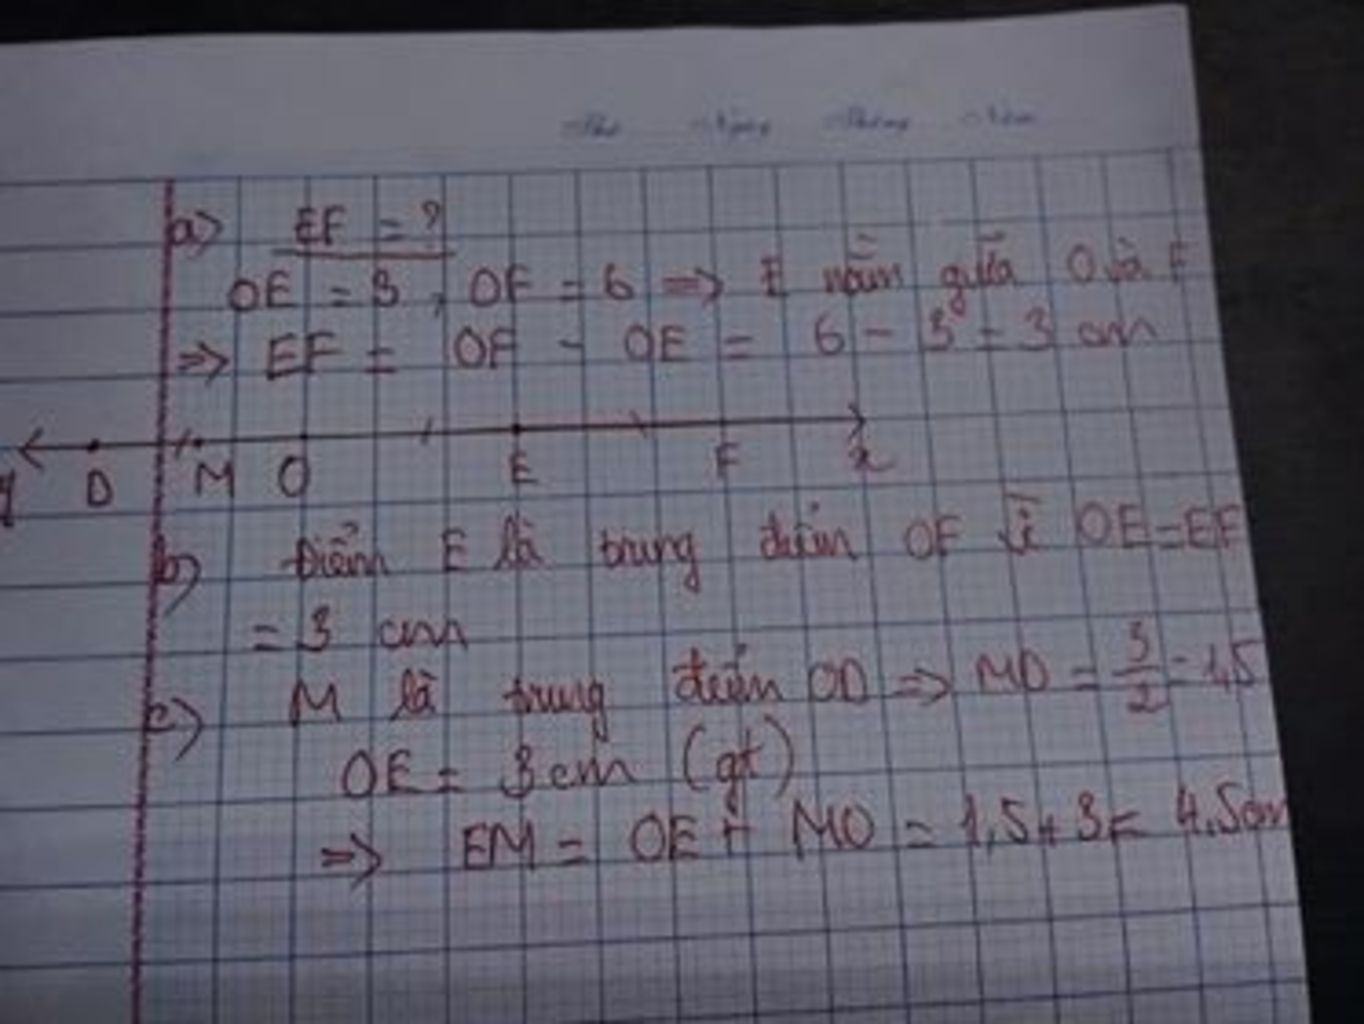 Thứ Ngày Tháng Năm
a) EF = ?
OE = 3, OF = 6 => E nằm giữa O và F
=> EF = OF - OE = 6 - 3 = 3 cm
y D M O E F x
b) Điểm E là trung điểm OF vì OE = EF
= 3 cm
c) M là trung điểm OD => MO = 3/2 = 1,5
OE = 3cm (gt)
=> EM = OE + MO = 1,5 + 3 = 4,5cm